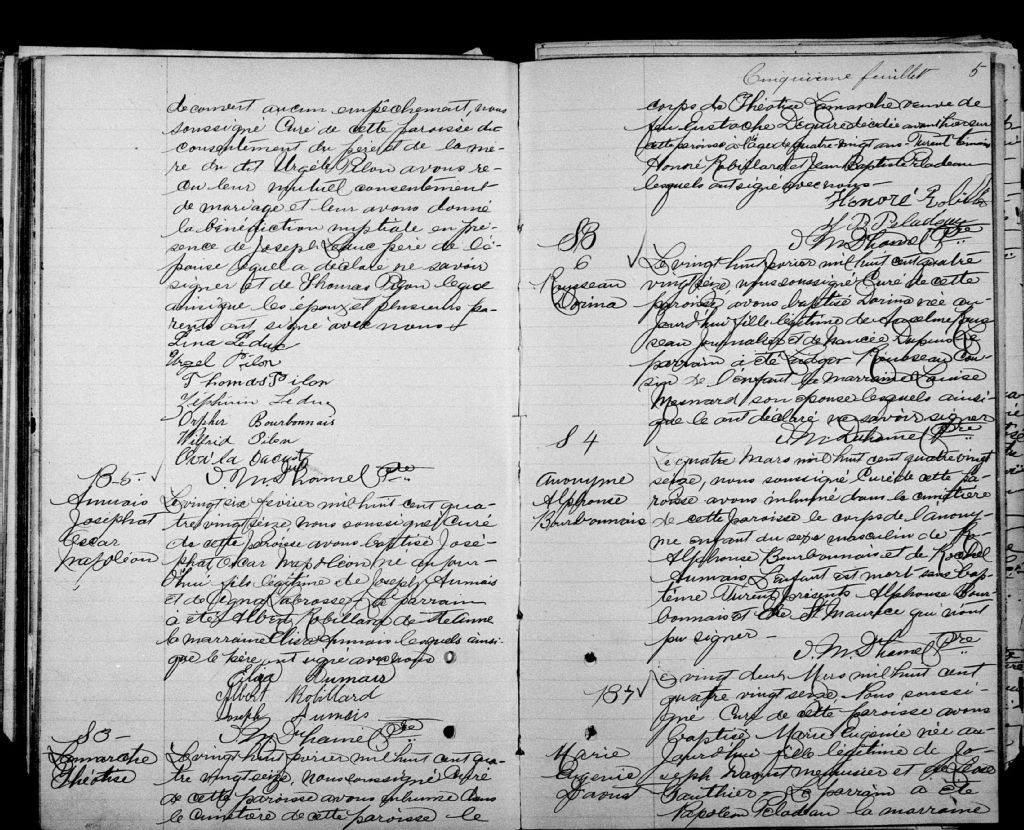 decouvert aucun empêchement, nous
soussigné Curé de cette paroisse du
consentement du père et de la mè-
re du dit Urgèle Pilon avons re-
çu leur mutuel consentement
de mariage et leur avons donné
la bénédiction nuptiale en pré-
sence de Joseph Leduc père de l'é-
pouse lequel a déclaré ne savoir
signer et de Thomas Pilon lequel
ainsi que les époux et plusieurs pa-
rents ont signé avec nous
Lina Leduc
Urgel Pilon
Thomas Pilon
Zephirin Leduc
Orpher Bourbonnais
Wilfrid Pilon
J. M. Duhamel Ptre
B 5
Aumais
Josephat
Oscar
Napoléon
Le vingt six fevrier mil huit cent qua-
tre vingt seize, nous soussigné, Curé
de cette paroisse avons baptisé José-
phat Oscar Napoléon né aujour-
d'hui fils légitime de Joseph Aumais
et de Régina Labrosse. Le parrain
a été Albert Robillard de
la marraine Elisa Aumais lesquels ainsi
que le père ont signé avec nous
Eliza Aumais
Albert Robillard
Joseph Aumais
J. M. Duhamel Ptre
S 3
Lamarche
Théotise
Le vingt huit fevrier mil huit cent qua-
tre vingt seize, nous soussigné Curé
de cette paroisse avons inhumé dans
le cimetière de cette paroisse le
Cinquième feuillet 5
corps de Théotise Lamarche veuve de
feu Eustache Dequire décédée avant hier sur
cette paroisse à l'âge de quatre-vingt ans. Furent témoins
Honoré Robillard et Jean Baptiste Pladeau
lesquels ont signé avec nous
Honoré Robillard
J. B. Pladeau
J. M. Duhamel Ptre
B
6
Rousseau
Dorina
Le vingt huit fevrier mil huit cent quatre
vingt seize nous soussigné Curé de cette
paroisse avons baptisé Dorina née au-
jourd'hui fille légitime de Anselme Rous-
seau journalier et de Dupuis. Le
parrain a été Ludger Rousseau cou-
sin de l'enfant la marraine Louise
Mesnard son épouse lesquels ainsi
que le ont déclaré ne savoir signer
J. M. Duhamel Ptre
S 4
Anonyme
Alphonse
Bourbonnais
Le quatre Mars mil huit cent quatre vingt
seize, nous soussigné Curé de cette pa-
roisse avons inhumé dans le cimetière
de cette paroisse le corps de l'anony-
me enfant du sexe masculin de
Alphonse Bourbonnais et de Rachel
Aumais. L'enfant est mort sans bap-
tême. Furent présents Alphonse Bour-
bonnais et St Maurice qui n'ont
pu signer
J. M. Duhamel Ptre
B 7
Marie
Eugenie
Daoust
Le vingt deux Mars mil huit cent
quatre vingt seize Nous soussi-
gné Curé de cette paroisse avons
baptisé Marie Eugenie née au-
jourd'hui fille légitime de Jo-
seph Daoust menuisier et de Rose
Gauthier. Le parrain a été
Napoléon Pladeau la marraine